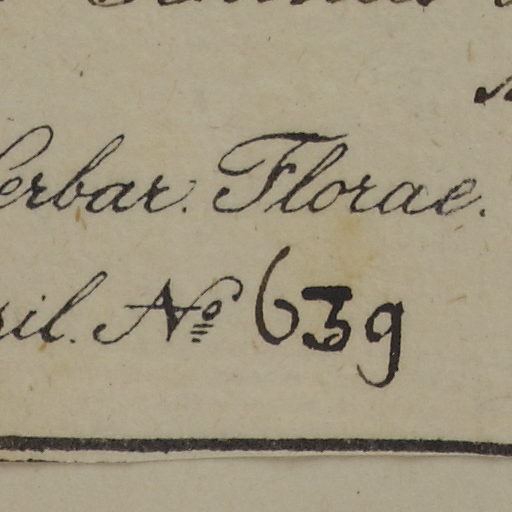 erbar. Florae.
il. No 639